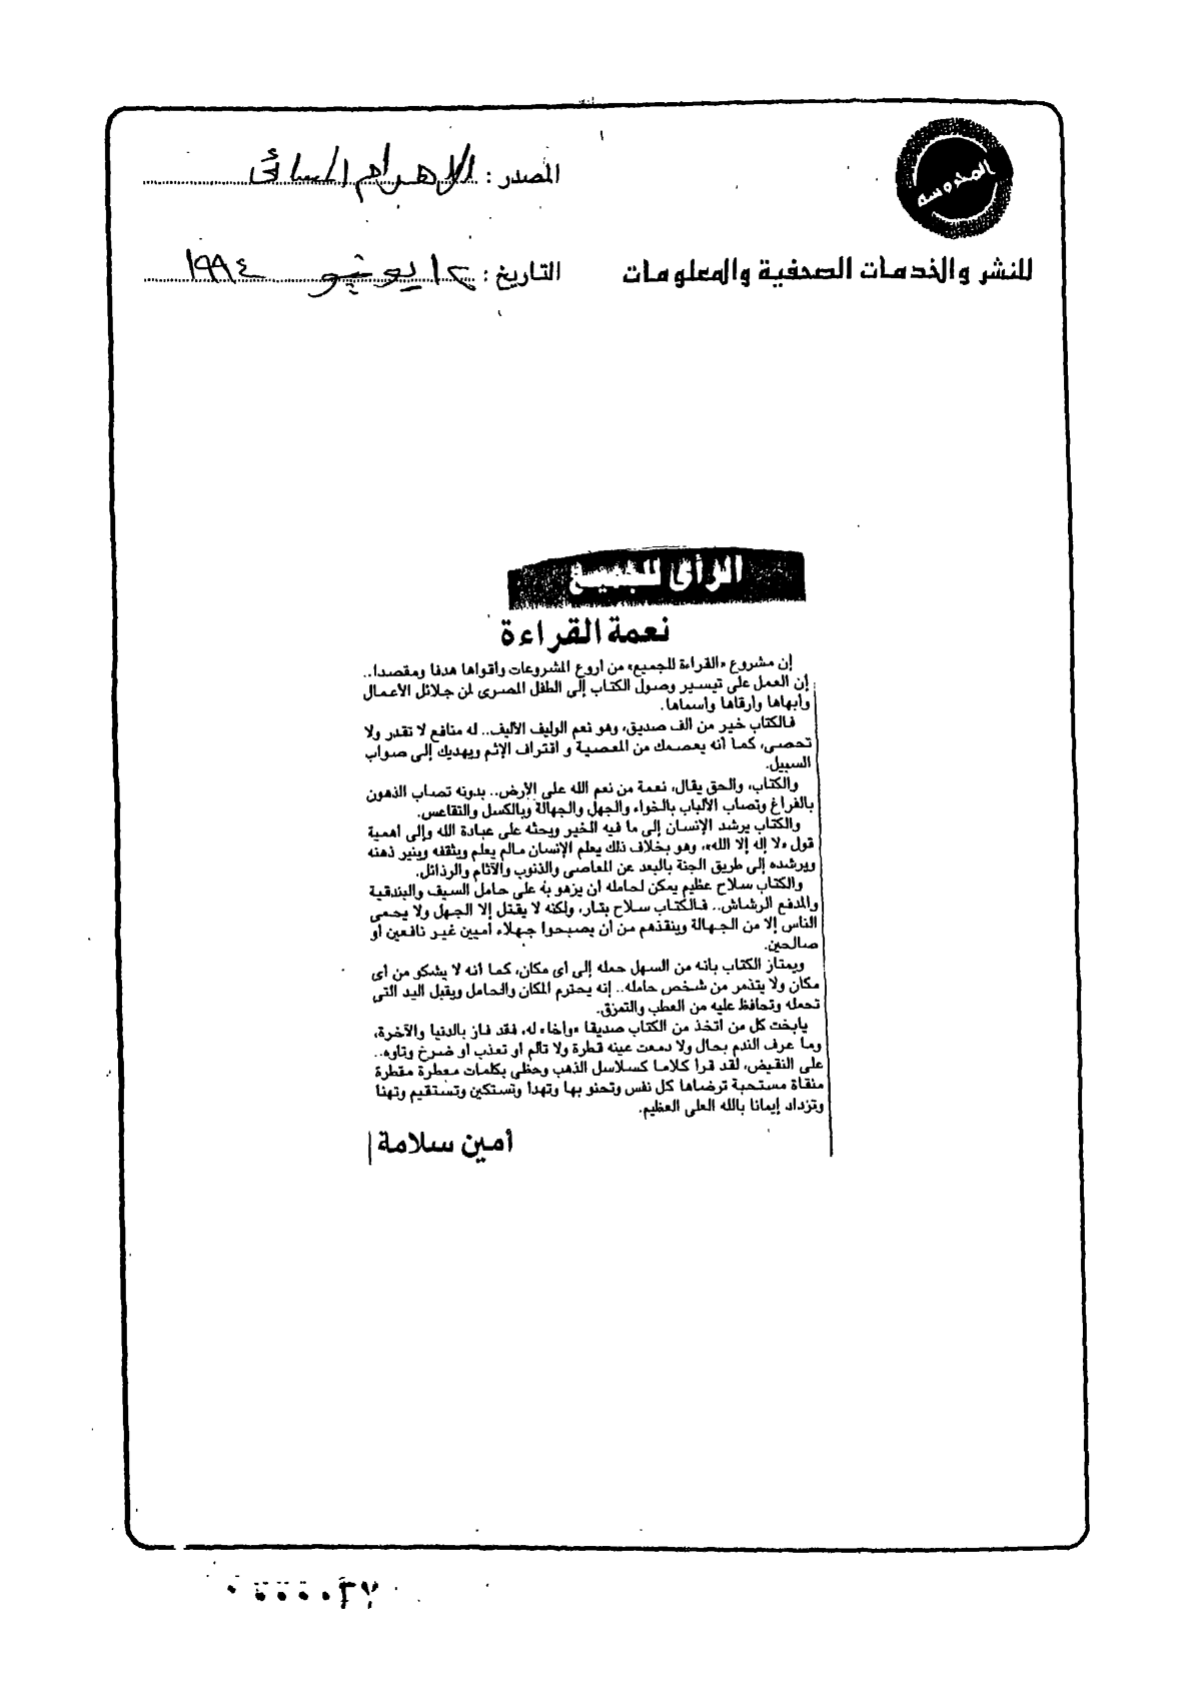 المحروسة
المصدر : الاهرام المسائى
للنشر والخدمات الصحفية والمعلومات
التاريخ : ١٢ يونيو ١٩٩٤
الرأى للجميع
نعمة القراءة
إن مشروع «القراءة للجميع» من اروع المشروعات واقواها هدفا ومقصدا..
إن العمل على تيسير وصول الكتاب إلى الطفل المصرى لمن جلائل الأعمال
وابهاها وارقاها واسماها.
فالكتاب خير من الف صديق، وهو نعم الوليف الأليف.. له منافع لا تقدر ولا
تحصى، كما أنه يعصمك من المعصية و اقتراف الإثم ويهديك إلى صواب
السبيل.
والكتاب، والحق يقال، نعمة من نعم الله على الأرض.. بدونه تصاب الذهون
بالفراغ وتصاب الألباب بالخواء والجهل والجهالة وبالكسل والتقاعس.
والكتاب يرشد الإنسان إلى ما فيه الخير ويحثه على عبادة الله وإلى اهمية
قول «لا إله إلا الله»، وهو بخلاف ذلك يعلم الإنسان مالم يعلم ويثقفه وينير ذهنه
ويرشده إلى طريق الجنة بالبعد عن المعاصى والذنوب والآثام والرذائل.
والكتاب سلاح عظيم يمكن لحامله ان يزهو به على حامل السيف والبندقية
والمدفع الرشاش.. فالكتاب سلاح بتار، ولكنه لا يقتل إلا الجهل ولا يحمى
الناس إلا من الجهالة وينقذهم من أن يصبحوا جهلاء أميين غير نافعين أو
صالحين.
ويمتاز الكتاب بانه من السهل حمله إلى اى مكان، كما انه لا يشكو من أى
مكان ولا يتذمر من شخص حامله.. إنه يحترم المكان والحامل ويقبل اليد التى
تحمله وتحافظ عليه من العطب والتمزق.
يابخت كل من اتخذ من الكتاب صديقا «وأخا» له، فقد فاز بالدنيا والآخرة،
وما عرف الندم بحال ولا دمعت عينه قطرة ولا تالم او تعذب او صرخ وتاوه..
على النقيض، لقد قرا كلاما كسلاسل الذهب وحظى بكلمات معطرة مقطرة
منقاة مستحبة ترضاها كل نفس وتحنو بها وتهدا وتستكين وتستقيم وتهنا
وتزداد إيمانا بالله العلى العظيم.
أمين سلامة